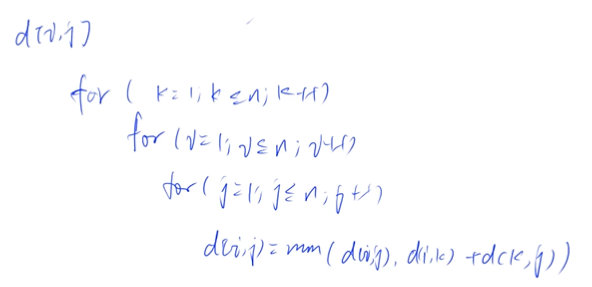 d[i,j]
for ( k=1; k≤n; k++)
for (i=1; i≤n; i++)
for (j=1; j≤n; j++)
d(i,j)=min(d(i,j), d(i,k)+d(k,j))